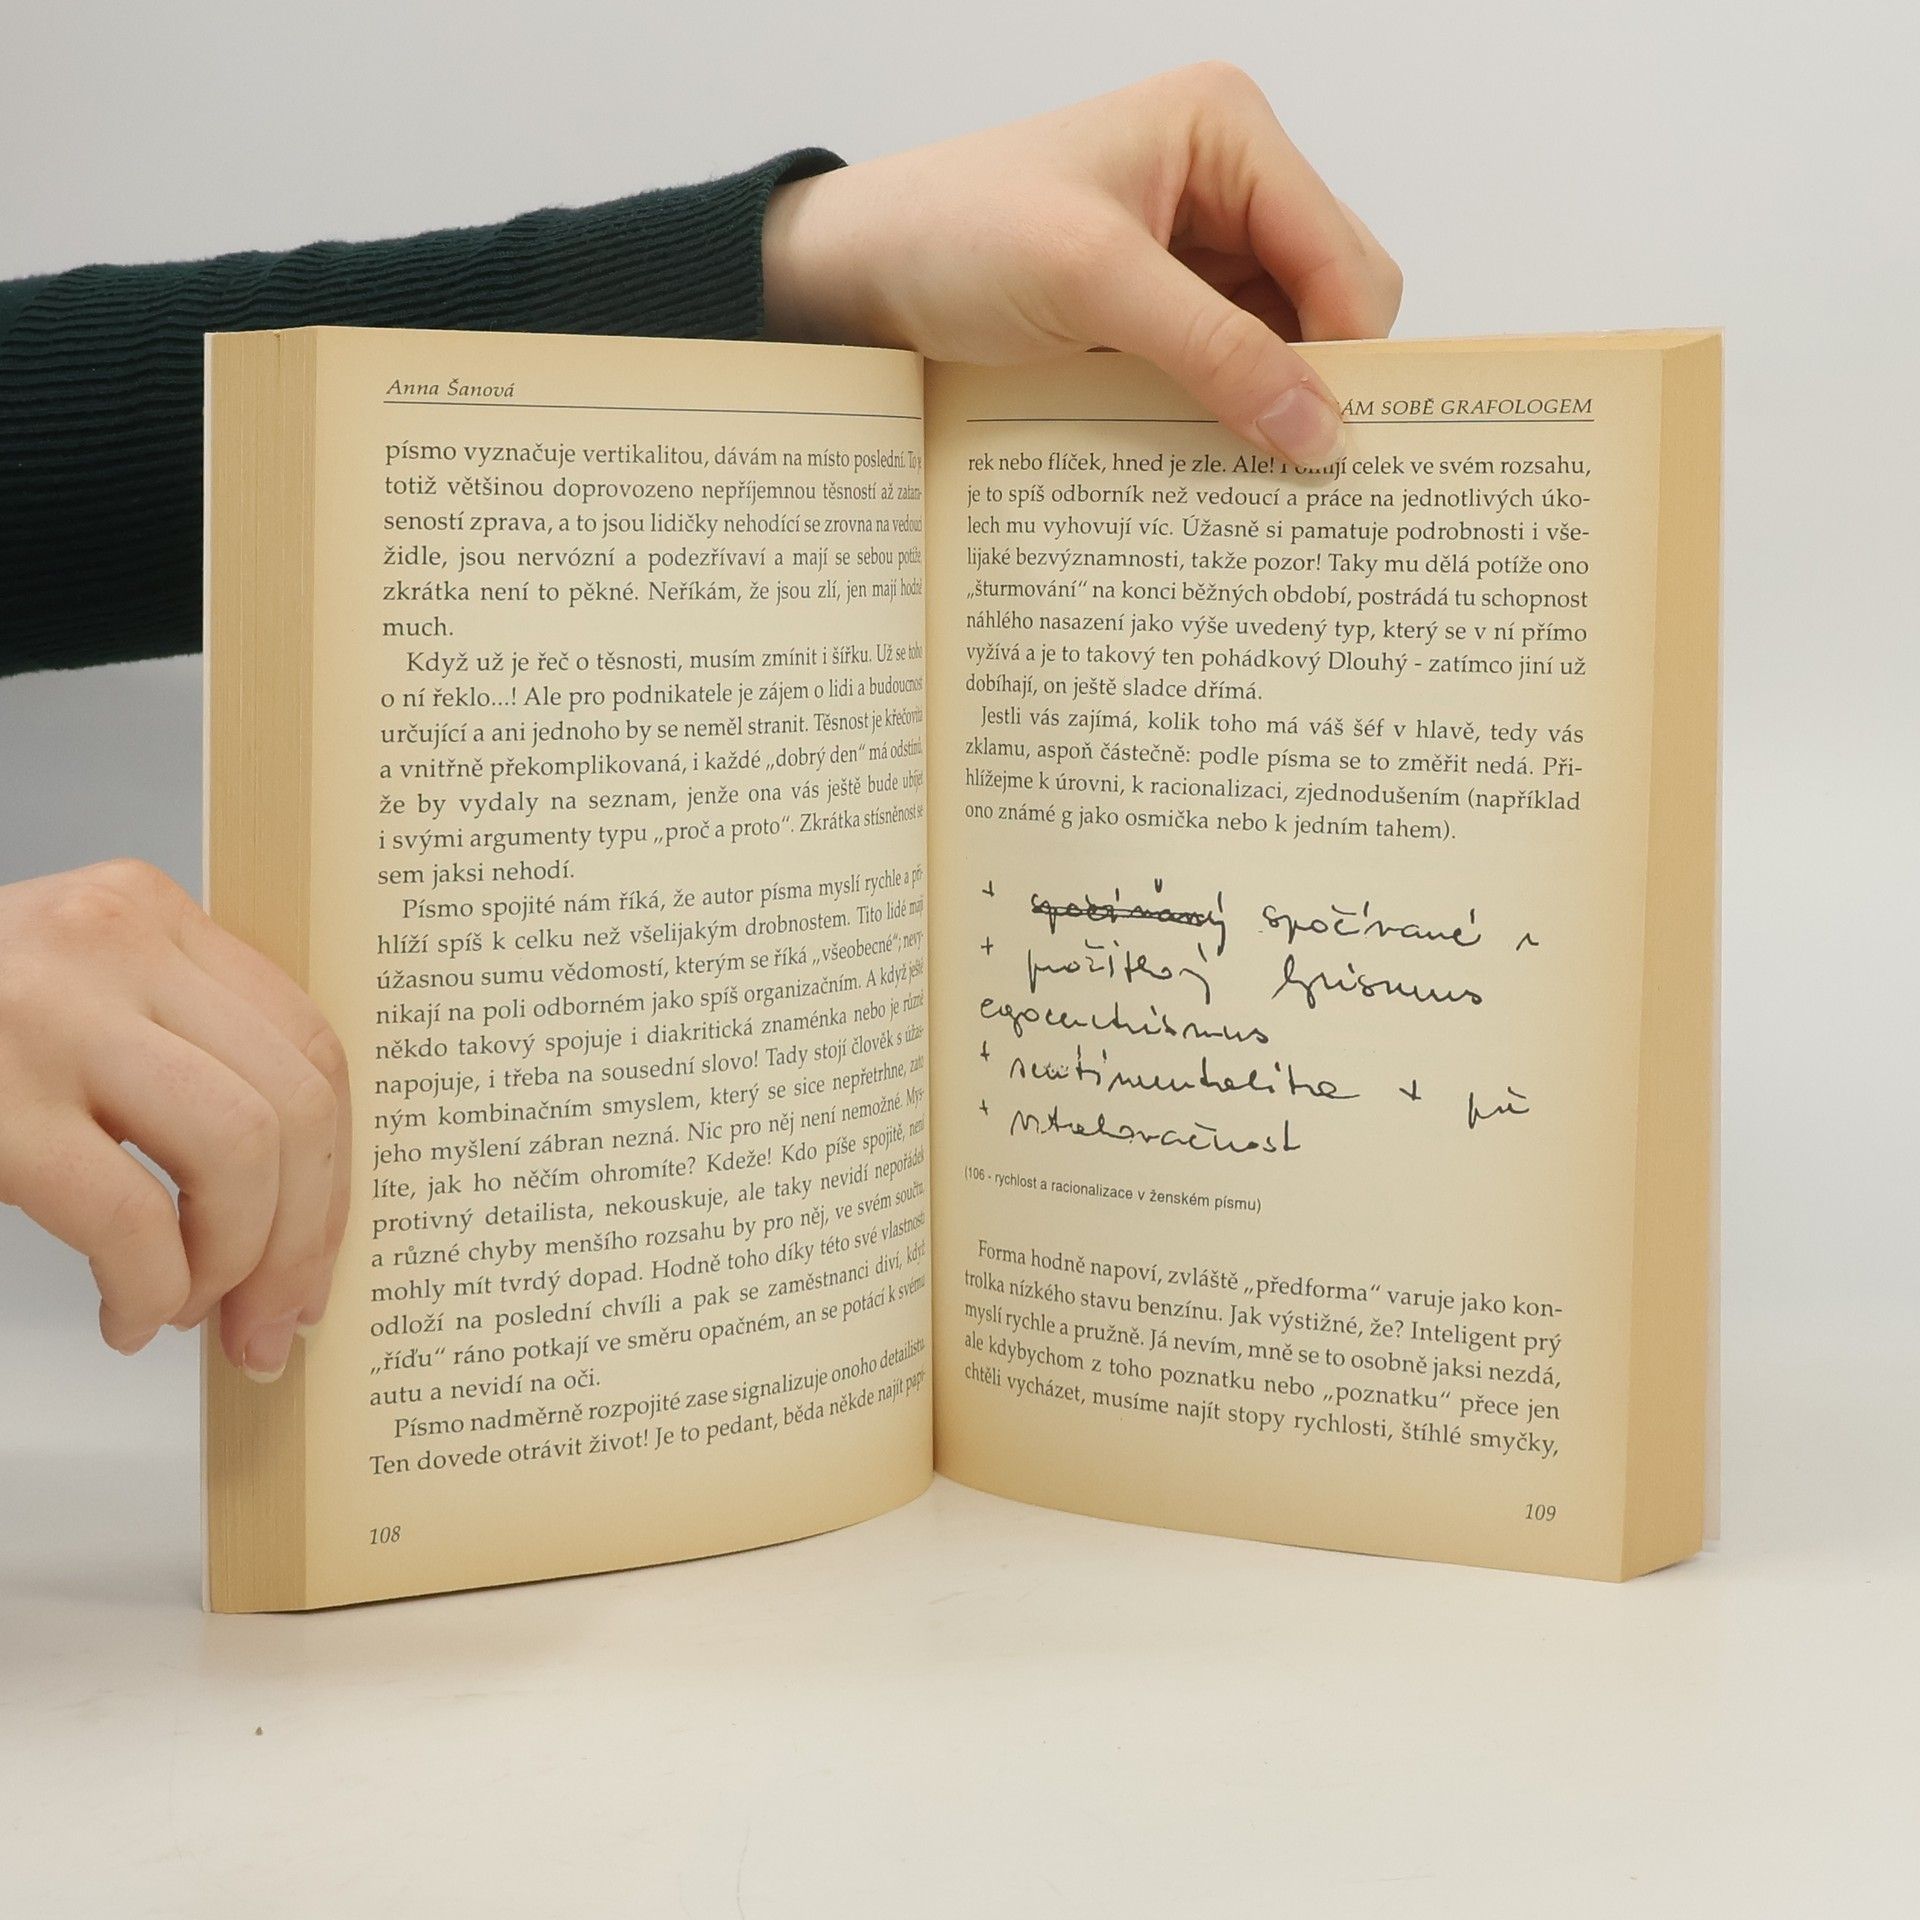 Anna Šanová
písmo vyznačuje vertikalitou, dávám na místo poslední. To je
totiž většinou doprovozeno nepříjemnou těsností až zatam-
seností zprava, a to jsou lidičky nehodící se zrovna na vedoucí
židle, jsou nervózní a podezřívaví a mají se sebou potíže,
zkrátka není to pěkné. Neříkám, že jsou zlí, jen mají hodně
much.
Když už je řeč o těsnosti, musím zmínit i šířku. Už se toho
o ní řeklo...! Ale pro podnikatele je zájem o lidi a budoucnost
určující a ani jednoho by se neměl stranit. Těsnost je křečovitá
a vnitřně překomplikovaná, i každé „dobrý den“ má odstínů,
že by vydaly na seznam, jenže ona vás ještě bude ubíjet
i svými argumenty typu „proč a proto“. Zkrátka stísněnost se
sem jaksi nehodí.
Písmo spojité nám říká, že autor písma myslí rychle a při-
hlíží spíš k celku než všelijakým drobnostem. Tito lidé mají
úžasnou sumu vědomostí, kterým se říká „všeobecné“; nevy-
nikají na poli odborném jako spíš organizačním. A když ještě
někdo takový spojuje i diakritická znaménka nebo je různě
napojuje, i třeba na sousední slovo! Tady stojí člověk s úžas-
ným kombinačním smyslem, který se sice nepřetrhne, zato
jeho myšlení zábran nezná. Nic pro něj není nemožné. Mys-
líte, jak ho něčím ohromíte? Kdeže! Kdo píše spojitě, není
protivný detailista, nekouskuje, ale taky nevidí nepořádek
a různé chyby menšího rozsahu by pro něj, ve svém součtu,
mohly mít tvrdý dopad. Hodně toho díky této své vlastnosti
odloží na poslední chvíli a pak se zaměstnanci diví, když
„říďu“ ráno potkají ve směru opačném, an se potácí k svému
autu a nevidí na oči.
Písmo nadměrně rozpojité zase signalizuje onoho detailistu.
Ten dovede otrávit život! Je to pedant, běda někde najít papí-
108
ÁM SOBĚ GRAFOLOGEM
rek nebo flíček, hned je zle. Ale! celek ve svém rozsahu,
je to spíš odborník než vedoucí a práce na jednotlivých úko-
lech mu vyhovují víc. Úžasně si pamatuje podrobnosti i vše-
lijaké bezvýznamnosti, takže pozor! Taky mu dělá potíže ono
„šturmování“ na konci běžných období, postrádá tu schopnost
náhlého nasazení jako výše uvedený typ, který se v ní přímo
vyžívá a je to takový ten pohádkový Dlouhý - zatímco jiní už
dobíhají, on ještě sladce dřímá.
Jestli vás zajímá, kolik toho má váš šéf v hlavě, tedy vás
zklamu, aspoň částečně: podle písma se to změřit nedá. Při-
hlížejme k úrovni, k racionalizaci, zjednodušením (například
ono známé g jako osmička nebo k jedním tahem).
+ spočívané
+ požitkový
egocentrismus
+ sentimentalita +
+ vztahovačnost
(106 - rychlost a racionalizace v ženském písmu)
Forma hodně napoví, zvláště „předforma“ varuje jako kon-
trolka nízkého stavu benzínu. Jak výstižné, že? Inteligent prý
myslí rychle a pružně. Já nevím, mně se to osobně jaksi nezdá,
ale kdybychom z toho poznatku nebo „poznatku“ přece jen
chtěli vycházet, musíme najít stopy rychlosti, štíhlé smyčky,
109